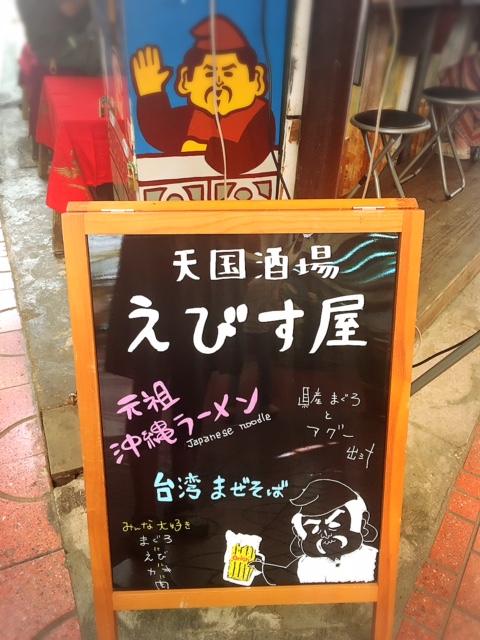 天国酒場
えびす屋
元祖
沖縄ラーメン
Japanese noodle
県産まぐろ
と
アグー
出汁
台湾まぜそば
みんな大好き
まぐろ
えび